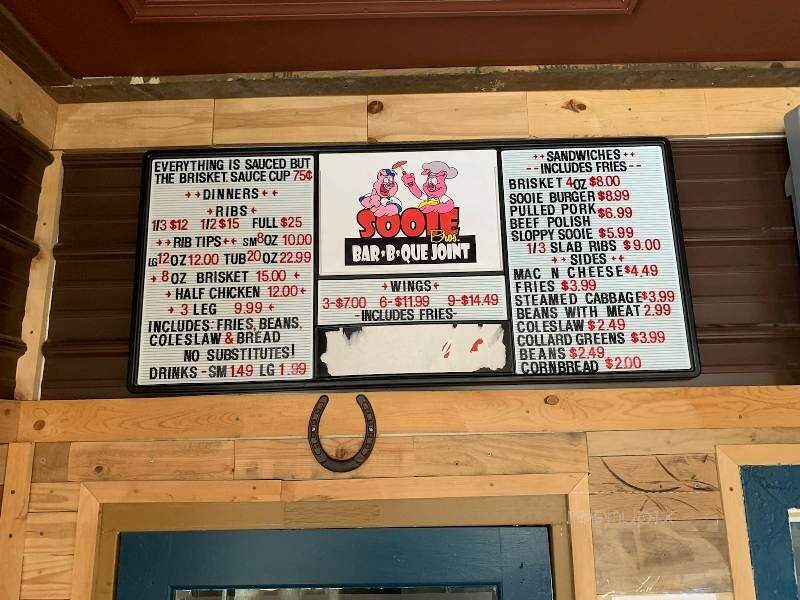 EVERYTHING IS SAUCED BUT
THE BRISKET. SAUCE CUP 75¢
++DINNERS++
+RIBS+
1/3 $12 1/2 $15 FULL $25
++RIB TIPS++ SM 8OZ 10.00
LG 12OZ 12.00 TUB 20OZ 22.99
+8OZ BRISKET 15.00+
+HALF CHICKEN 12.00+
+3 LEG 9.99+
INCLUDES: FRIES, BEANS,
COLESLAW & BREAD
NO SUBSTITUTES!
DRINKS - SM 1.49 LG 1.99
SOOIE
Bros.
BAR-B-QUE JOINT
+WINGS+
3-$7.00 6-$11.99 9-$14.49
-INCLUDES FRIES-
++SANDWICHES++
--INCLUDES FRIES--
BRISKET 4OZ $8.00
SOOIE BURGER $8.99
PULLED PORK $6.99
BEEF POLISH
SLOPPY SOOIE $5.99
1/3 SLAB RIBS $9.00
++SIDES++
MAC N CHEESE $4.49
FRIES $3.99
STEAMED CABBAGE $3.99
BEANS WITH MEAT 2.99
COLESLAW $2.49
COLLARD GREENS $3.99
BEANS $2.49
CORNBREAD $2.00